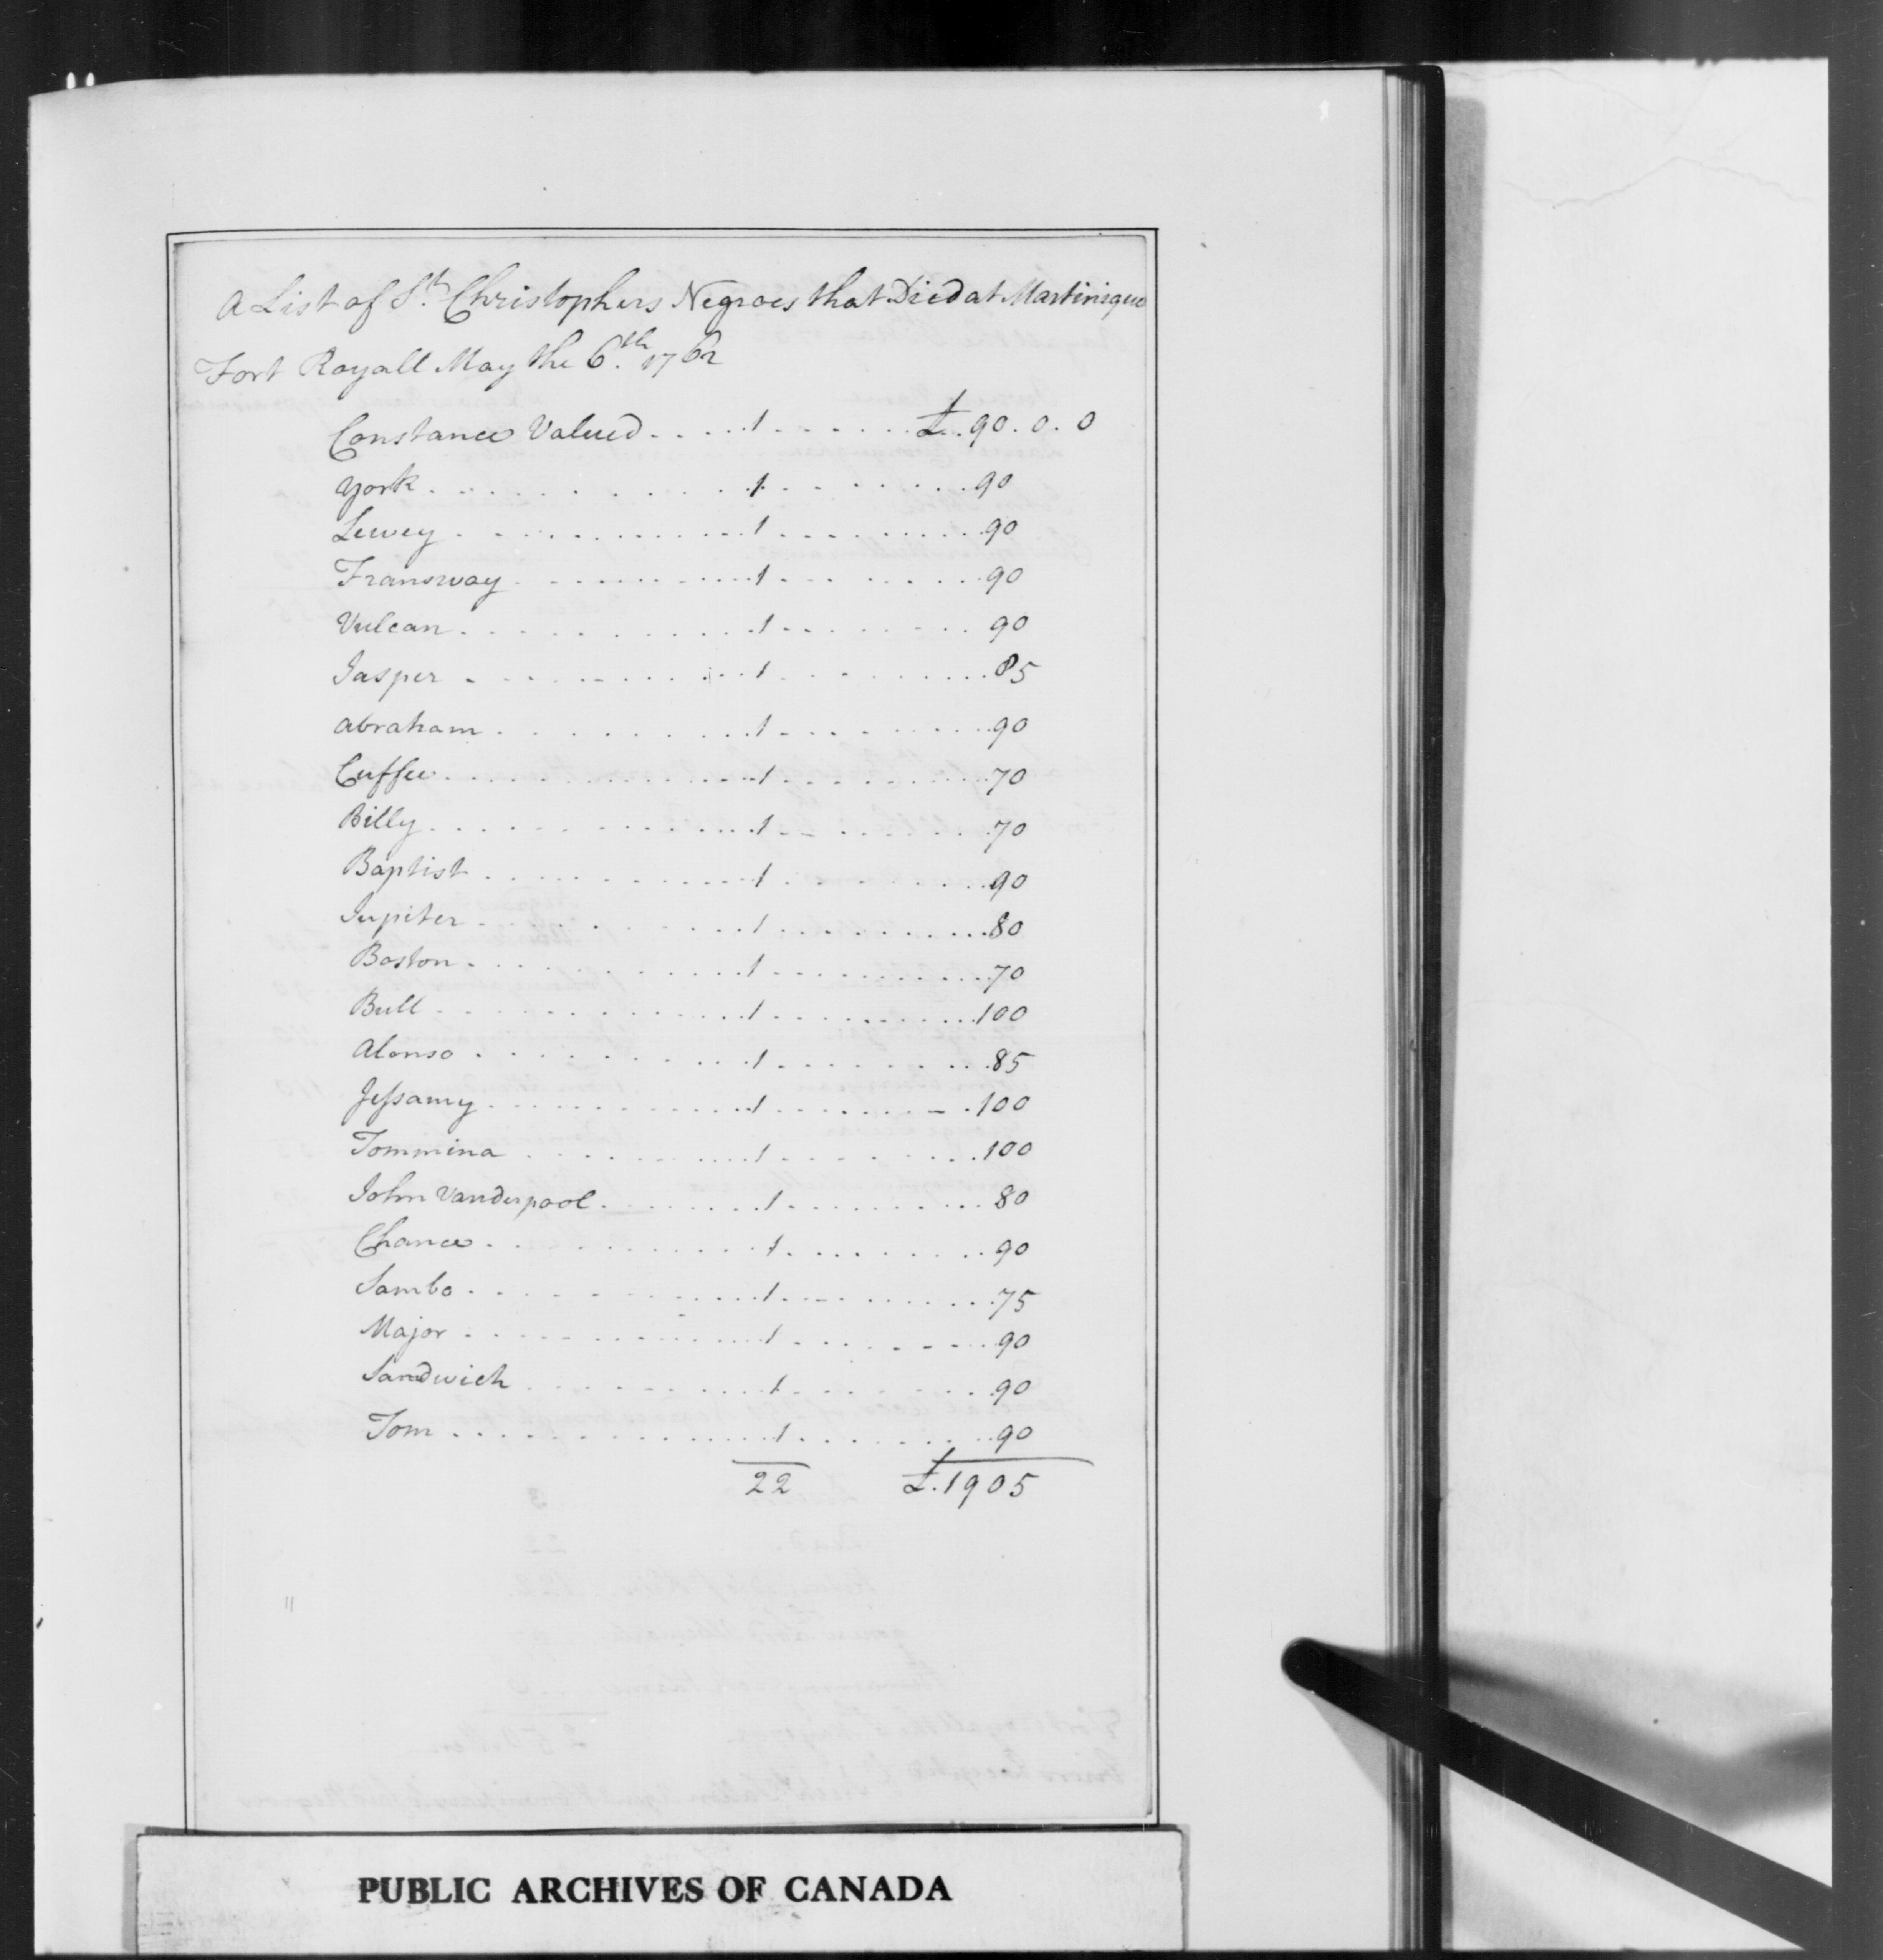 A List of St. Christophers Negroes that Died at Martinique
Fort Royall May the 6th. 1762
Constance Valued . . . . . 1 . . . . . . £ . 90 . 0 . 0
York . . . . . . . . . . 1 . . . . . . . 90
Lewey . . . . . . . . . . 1 . . . . . . . 90
Fransway . . . . . . . . . . 1 . . . . . . . 90
Vulcan . . . . . . . . . . 1 . . . . . . . 90
Jasper . . . . . . . . . . 1 . . . . . . . 85
Abraham . . . . . . . . . . 1 . . . . . . . 90
Cuffee . . . . . . . . . . 1 . . . . . . . 70
Billy . . . . . . . . . . 1 . . . . . . . 70
Baptist . . . . . . . . . . 1 . . . . . . . 90
Jupiter . . . . . . . . . . 1 . . . . . . . 80
Boston . . . . . . . . . . 1 . . . . . . . 70
Bull . . . . . . . . . . 1 . . . . . . . 100
Alonso . . . . . . . . . . 1 . . . . . . . 85
Jessamy . . . . . . . . . . 1 . . . . . . . 100
Tommina . . . . . . . . . . 1 . . . . . . . 100
John Vanderpool . . . . . . . 1 . . . . . . . 80
Chance . . . . . . . . . . 1 . . . . . . . 90
Sambo . . . . . . . . . . 1 . . . . . . . 75
Major . . . . . . . . . . 1 . . . . . . . 90
Sandwich . . . . . . . . . . 1 . . . . . . . 90
Tom . . . . . . . . . . 1 . . . . . . . 90
22 £ . 1905
PUBLIC ARCHIVES OF CANADA